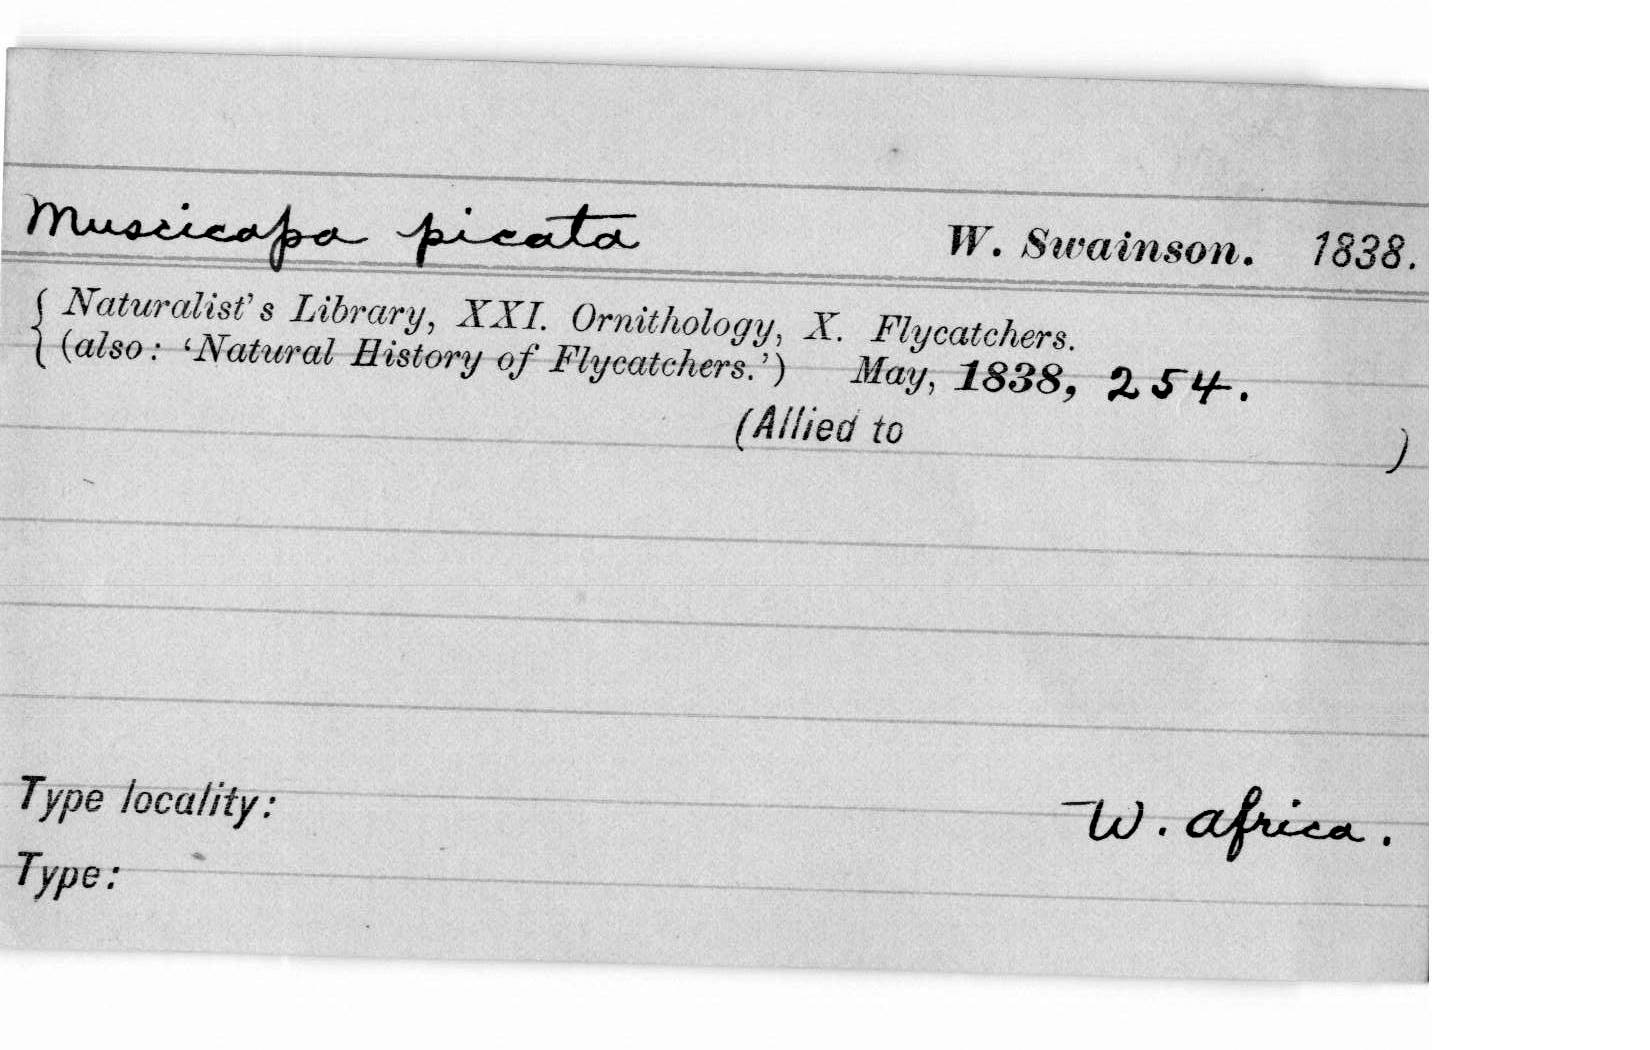 Muscicapa picata W. Swainson. 1838.
{ Naturalist's Library, XXI. Ornithology, X. Flycatchers.
(also: 'Natural History of Flycatchers.') May, 1838, 254.
(Allied to )
Type locality: W. Africa.
Type: